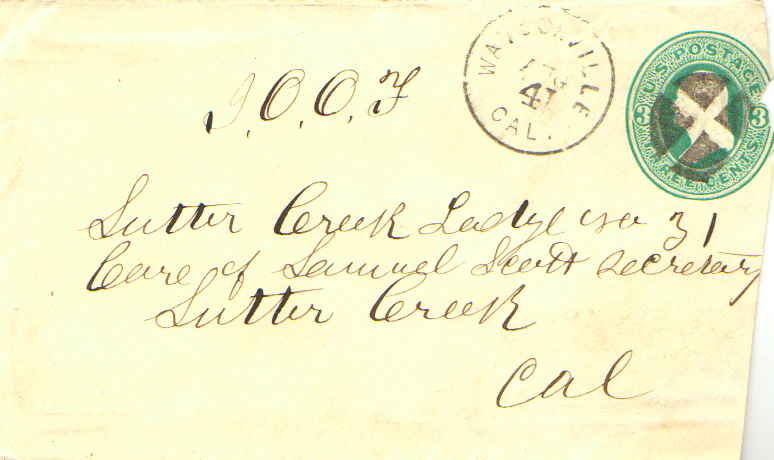 I.O.O.F
WATSONVILLE
CAL.
U.S. POSTAGE
3 3
THREE CENTS
Sutter Creek Lodge no 31
Care of Samuel Scott secretary
Sutter Creek
Cal